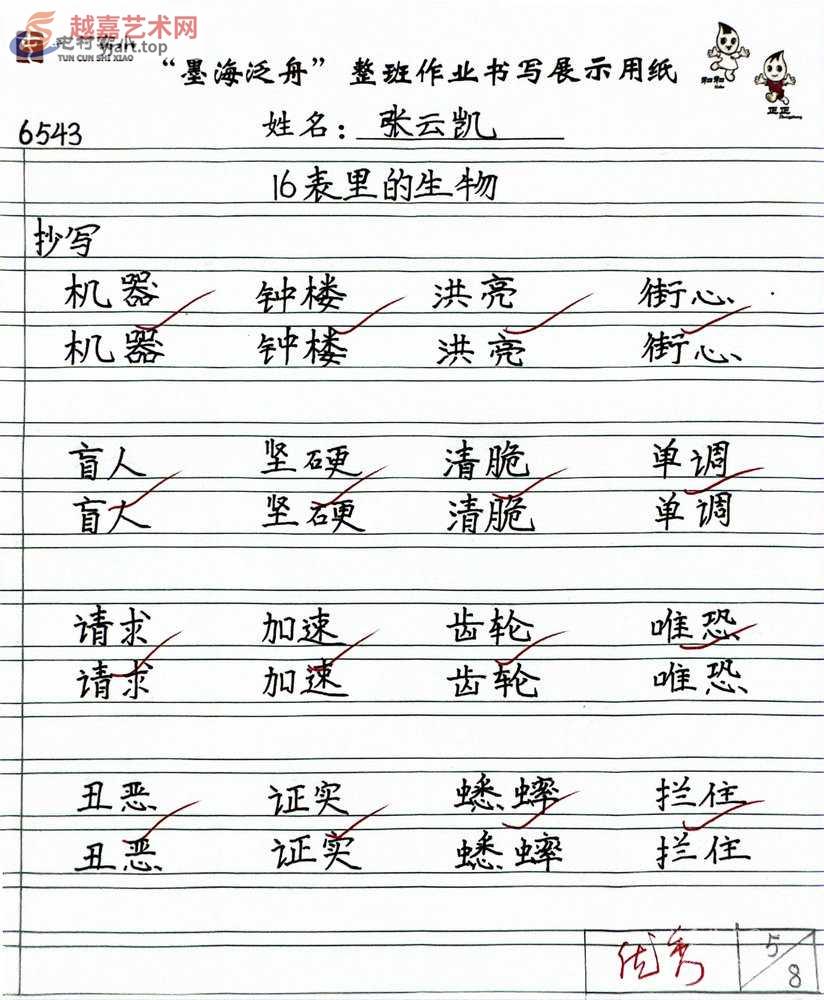 越嘉艺术网
yjart.top
TUN CUN SHI XIAO
“墨海泛舟”整班作业书写展示用纸
和和
正正
6543 姓名：张云凯
16表里的生物
抄写
机器 钟楼 洪亮 街心
机器 钟楼 洪亮 街心
盲人 坚硬 清脆 单调
盲人 坚硬 清脆 单调
请求 加速 齿轮 唯恐
请求 加速 齿轮 唯恐
丑恶 证实 蟋蟀 拦住
丑恶 证实 蟋蟀 拦住
优秀 5/8